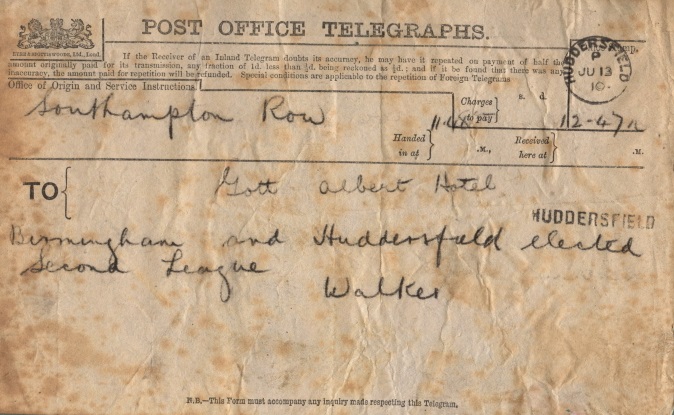 POST OFFICE TELEGRAPHS.
If the Receiver of an Inland Telegram doubts its accuracy, he may have it repeated on payment of half the
amount originally paid for its transmission, any fraction of 1d. less than ½d. being reckoned as ½d.; and if it be found that there was any
inaccuracy, the amount paid for repetition will be refunded. Special conditions are applicable to the repetition of Foreign Telegrams
Office of Origin and Service Instructions.
Southampton Row
Charges
to pay
s. d.
HUDDERSFIELD
P
JU 13
10
Handed
in at
11.48
.M.,
Received
here at
12-47
.M.
TO
Gott Albert Hotel
HUDDERSFIELD
Birmingham and Huddersfield elected
Second League
Walker
N.B.—This Form must accompany any inquiry made respecting this Telegram.